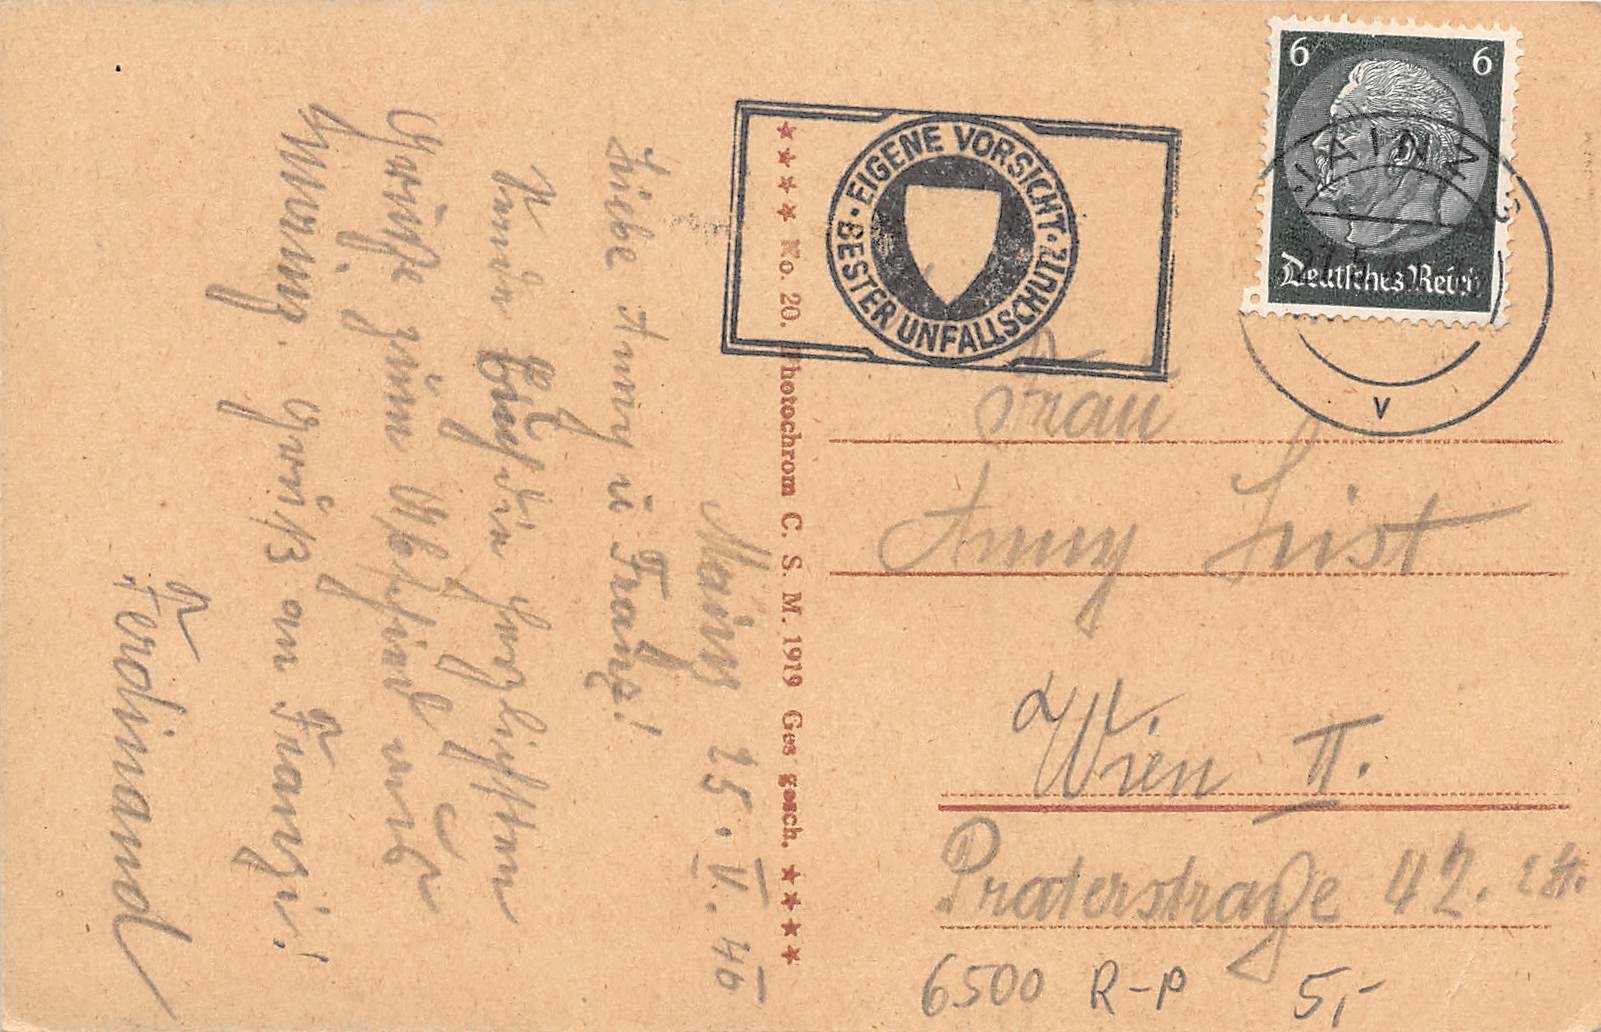 6 6
Deutsches Reich
MAINZ
v
EIGENE VORSICHT · BESTER UNFALLSCHUTZ ·
★★★★ No. 20. Photochrom C. S. M. 1919 Ges gesch. ★★★★
Mainz 25. V. 40
Liebe Anny u Franz!
Euch die herzlichsten
Grüße zum Abschied
Mainz. Gruß an Franzi!
Ferdinand
Frau
Anny List
Wien II.
Praterstraße 42.
6500 R-P 5,-